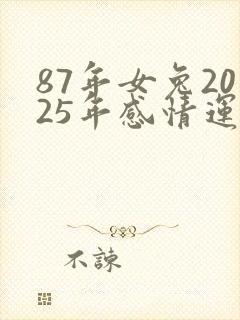 87年女兔20
25年感情運
不諫